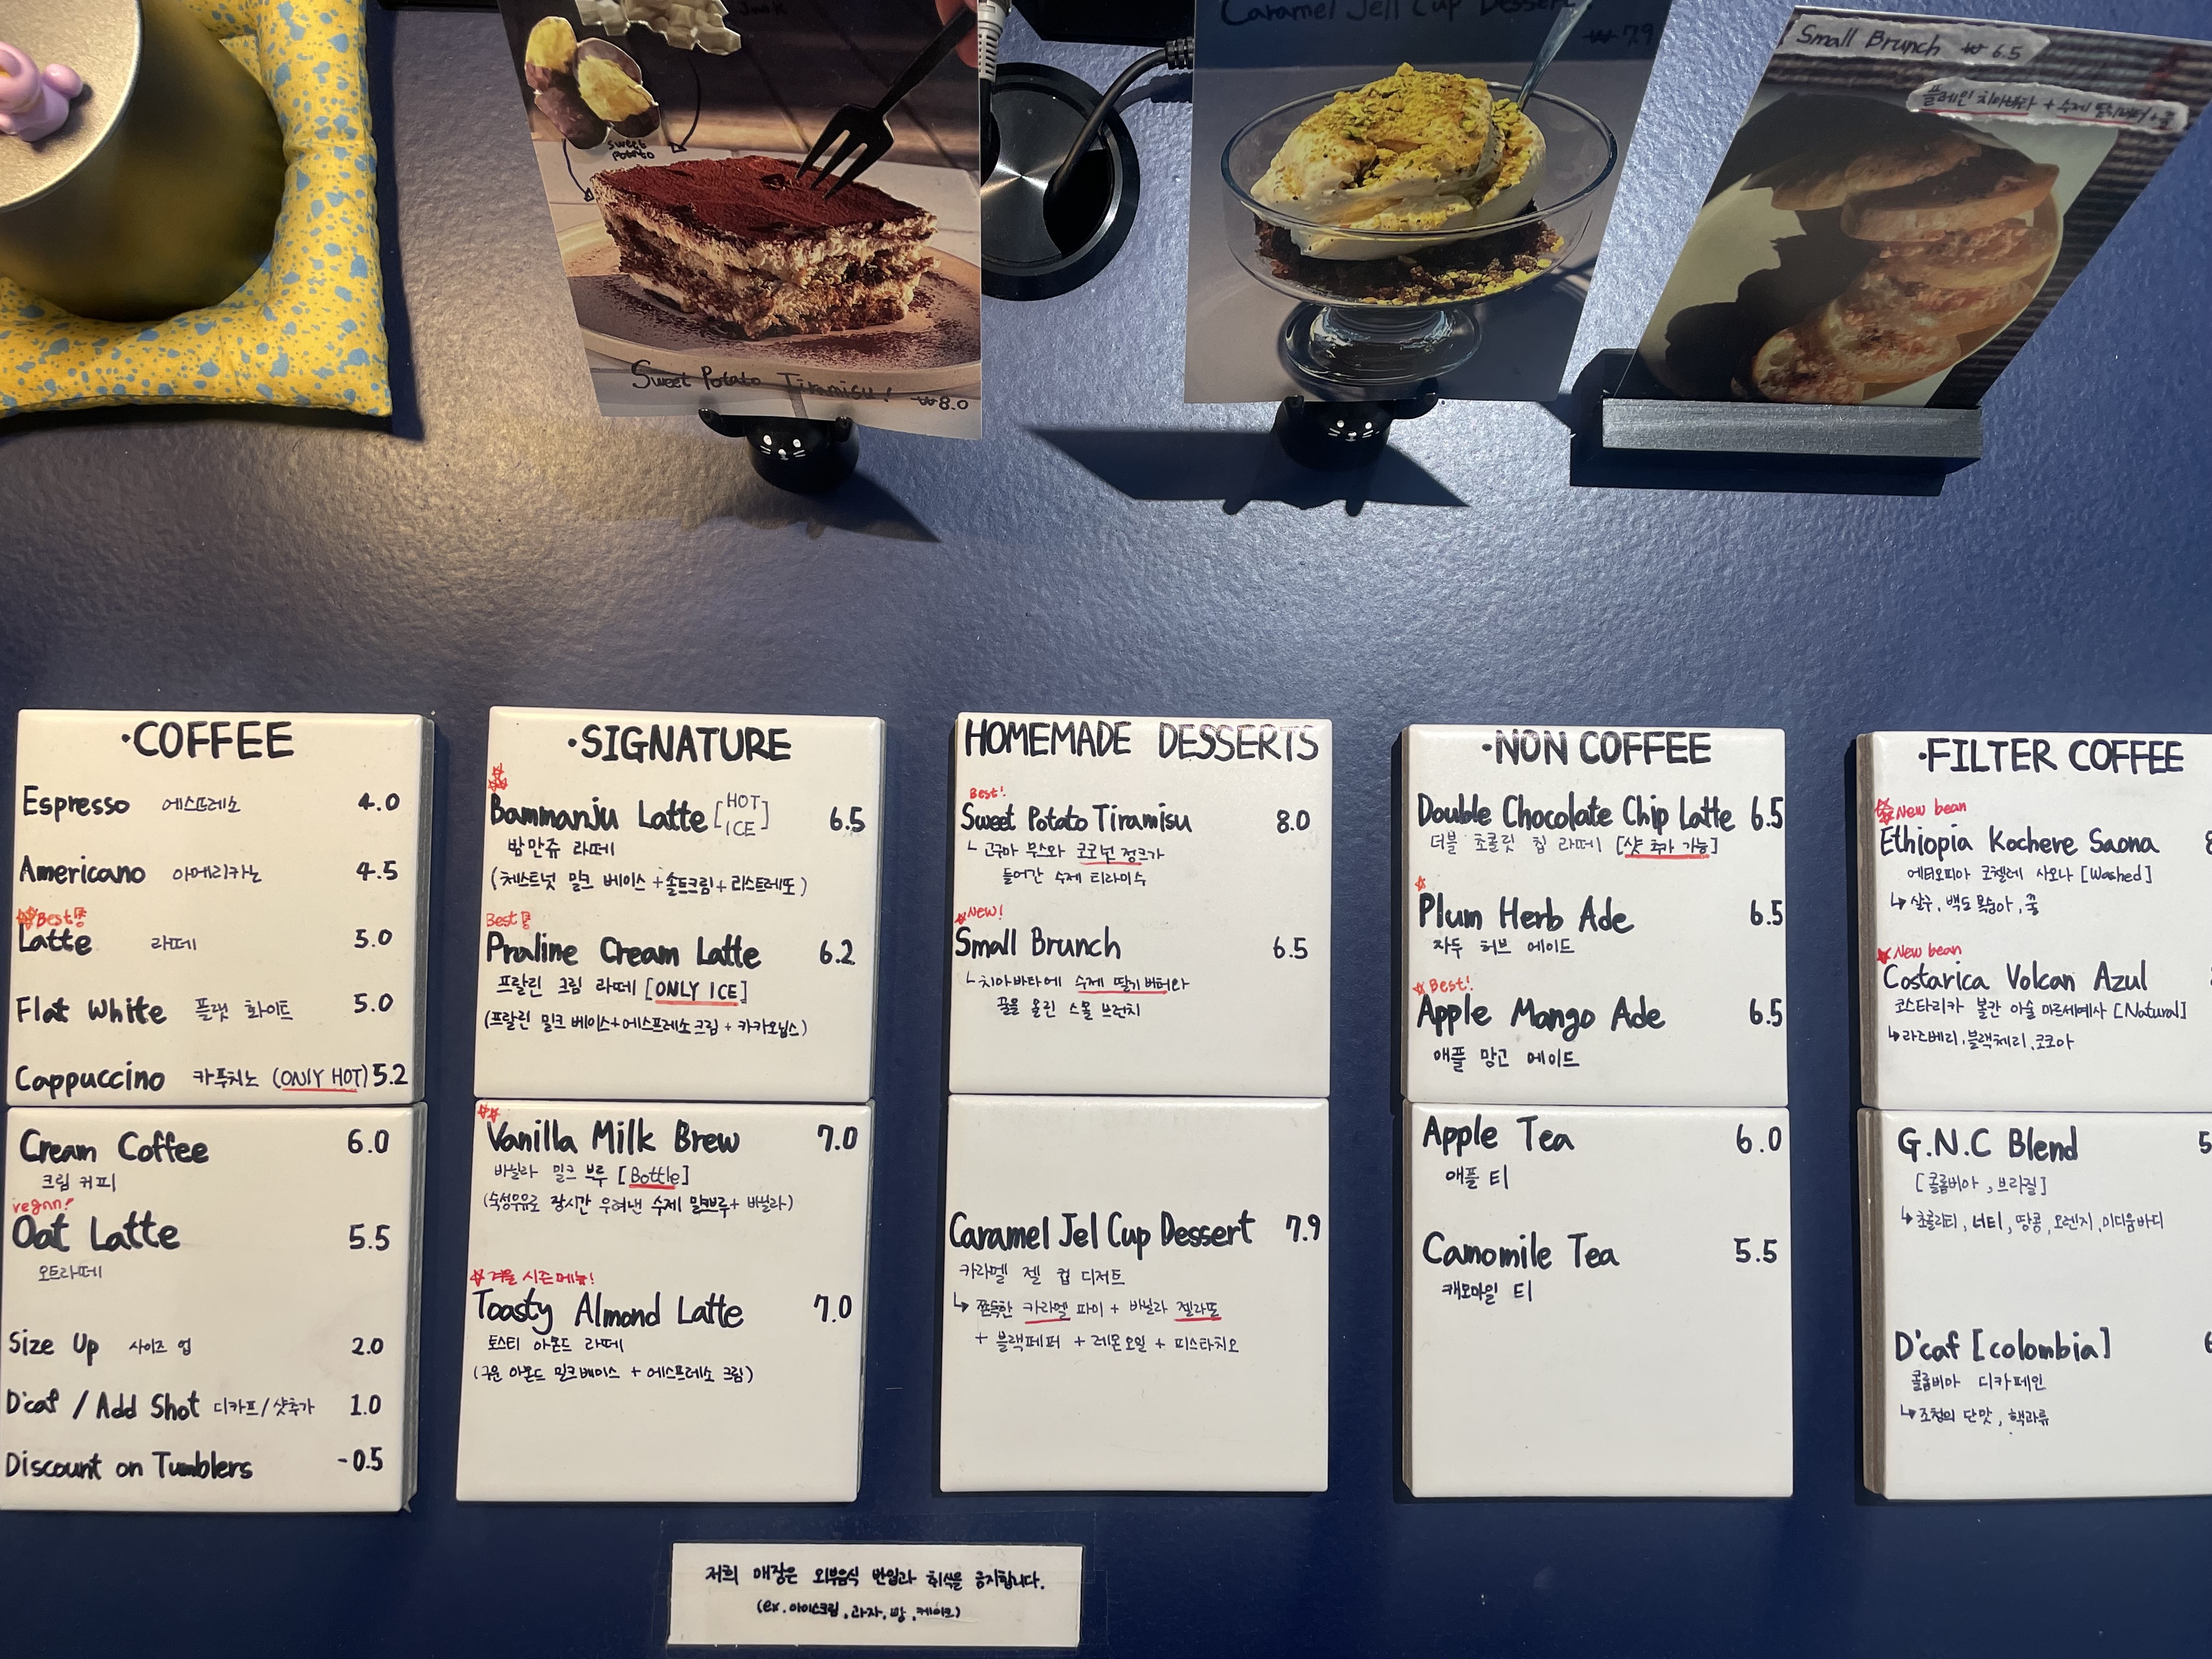 Caramel Jell Cup Dessert
₩ 7.9
Small Brunch ₩ 6.5
플레인 치아바타 + 수제 딸기버터 + 꿀
sweet
potato
Sweet Potato Tiramisu! ₩8.0
·COFFEE
Espresso 에스프레소 4.0
Americano 아메리카노 4.5
Best
Latte 라떼 5.0
Flat White 플랫 화이트 5.0
Cappuccino 카푸치노 (ONLY HOT) 5.2
Cream Coffee 6.0
크림 커피
vegan!
Oat Latte 5.5
오트라떼
Size Up 사이즈 업 2.0
D'caf / Add Shot 디카프/샷추가 1.0
Discount on Tumblers -0.5
·SIGNATURE
Bammanju Latte [HOT ICE] 6.5
밤만쥬 라떼
(체스트넛 밀크 베이스 + 솔트크림 + 리스트레또)
Best
Praline Cream Latte 6.2
프랄린 크림 라떼 [ONLY ICE]
(프랄린 밀크 베이스+에스프레소 크림 + 카카오닙스)
Vanilla Milk Brew 7.0
바닐라 밀크 브루 [Bottle]
(숙성우유로 장시간 우려낸 수제 밀크브루+ 바닐라)
겨울 시즌메뉴!
Toasty Almond Latte 7.0
토스티 아몬드 라떼
(구운 아몬드 밀크베이스 + 에스프레소 크림)
HOMEMADE DESSERTS
Best!
Sweet Potato Tiramisu 8.0
고구마 무스와 코코넛 청크가
들어간 수제 티라미수
New!
Small Brunch 6.5
치아바타에 수제 딸기버터와
꿀을 올린 스몰 브런치
Caramel Jel Cup Dessert 7.9
카라멜 젤 컵 디저트
↳ 쫀득한 카라멜 파이 + 바닐라 젤라또
+ 블랙페퍼 + 레몬오일 + 피스타치오
·NON COFFEE
Double Chocolate Chip Latte 6.5
더블 초콜릿 칩 라떼 [샷 추가 가능]
Plum Herb Ade 6.5
자두 허브 에이드
Best!
Apple Mango Ade 6.5
애플 망고 에이드
Apple Tea 6.0
애플 티
Camomile Tea 5.5
캐모마일 티
·FILTER COFFEE
New bean
Ethiopia Kochere Saona
에티오피아 코체레 사오나 [Washed]
↳ 살구, 백도 복숭아, 꿀
New bean
Costarica Volcan Azul
코스타리카 볼칸 아술 마르세예사 [Natural]
↳ 라즈베리, 블랙체리, 코코아
G.N.C Blend 5
[콜롬비아, 브라질]
↳ 초콜리티, 너티, 땅콩, 오렌지, 미디움바디
D'caf [colombia]
콜롬비아 디카페인
↳ 조청의 단맛, 핵과류
저희 매장은 외부음식 반입과 취식을 금지합니다.
(ex. 아이스크림, 과자, 빵, 케이크)